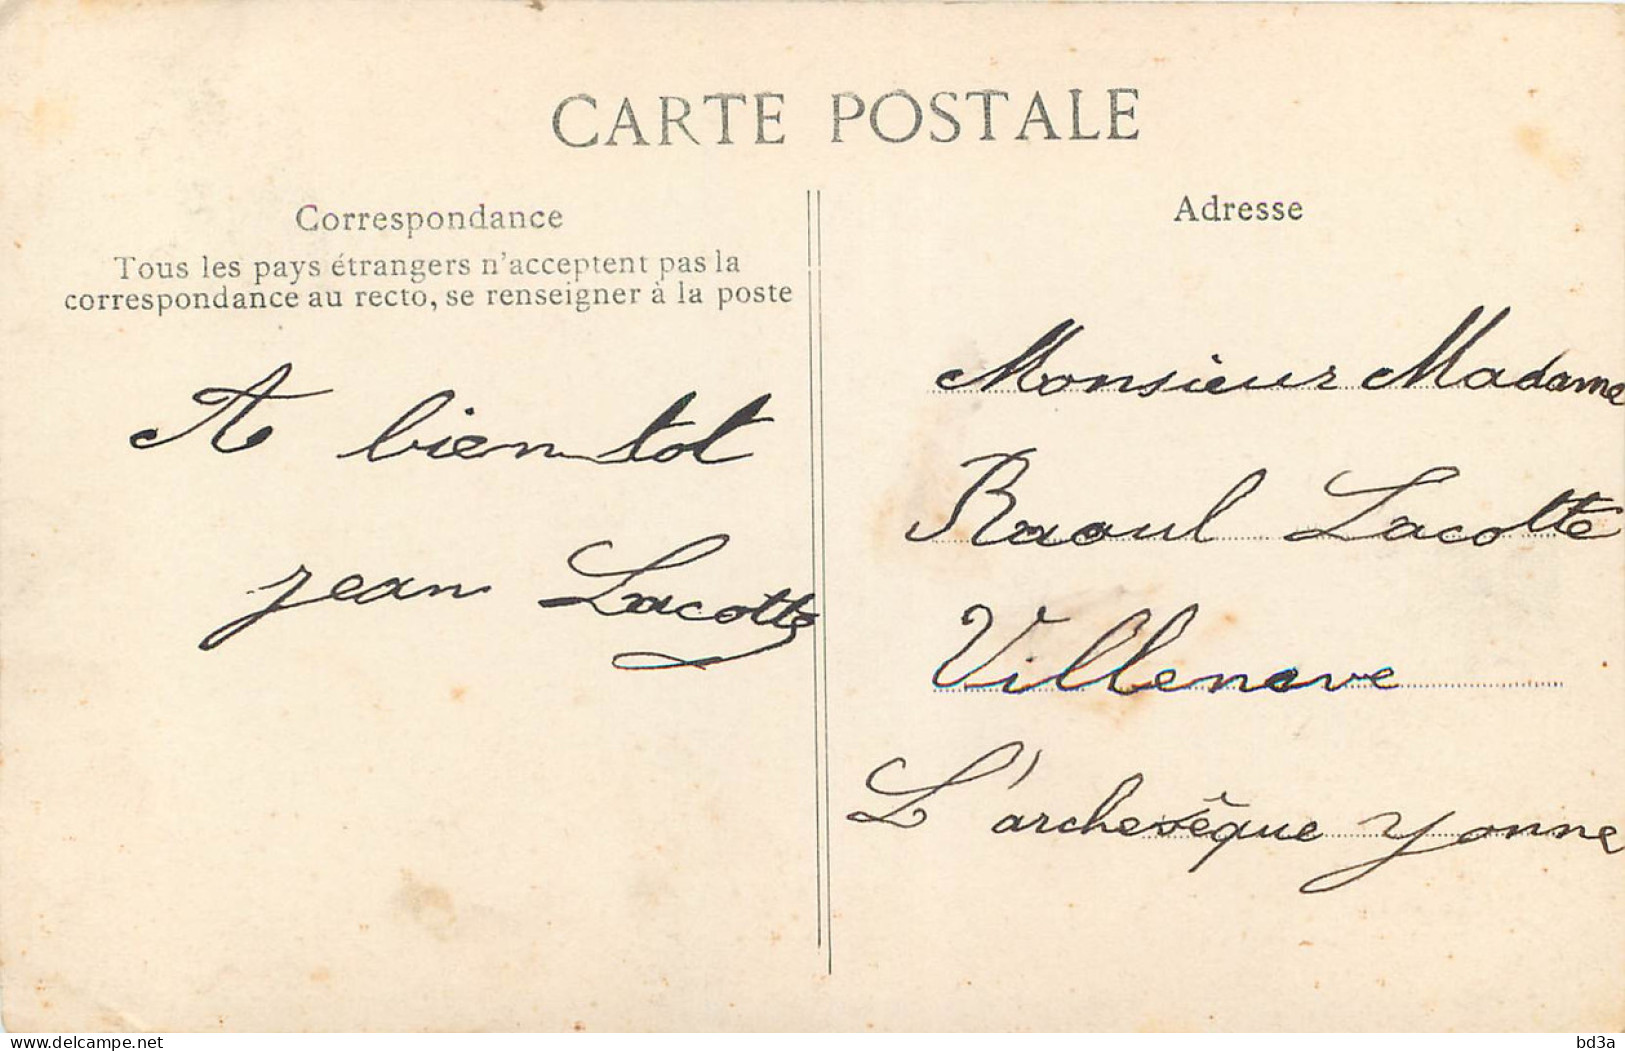 CARTE POSTALE
Correspondance
Tous les pays étrangers n'acceptent pas la
correspondance au recto, se renseigner à la poste
A bientot
jean Lacotte
Adresse
Monsieur Madame
Raoul Lacotte
Villeneve
L'archevêque Yonne
delcampe.net
bd3a